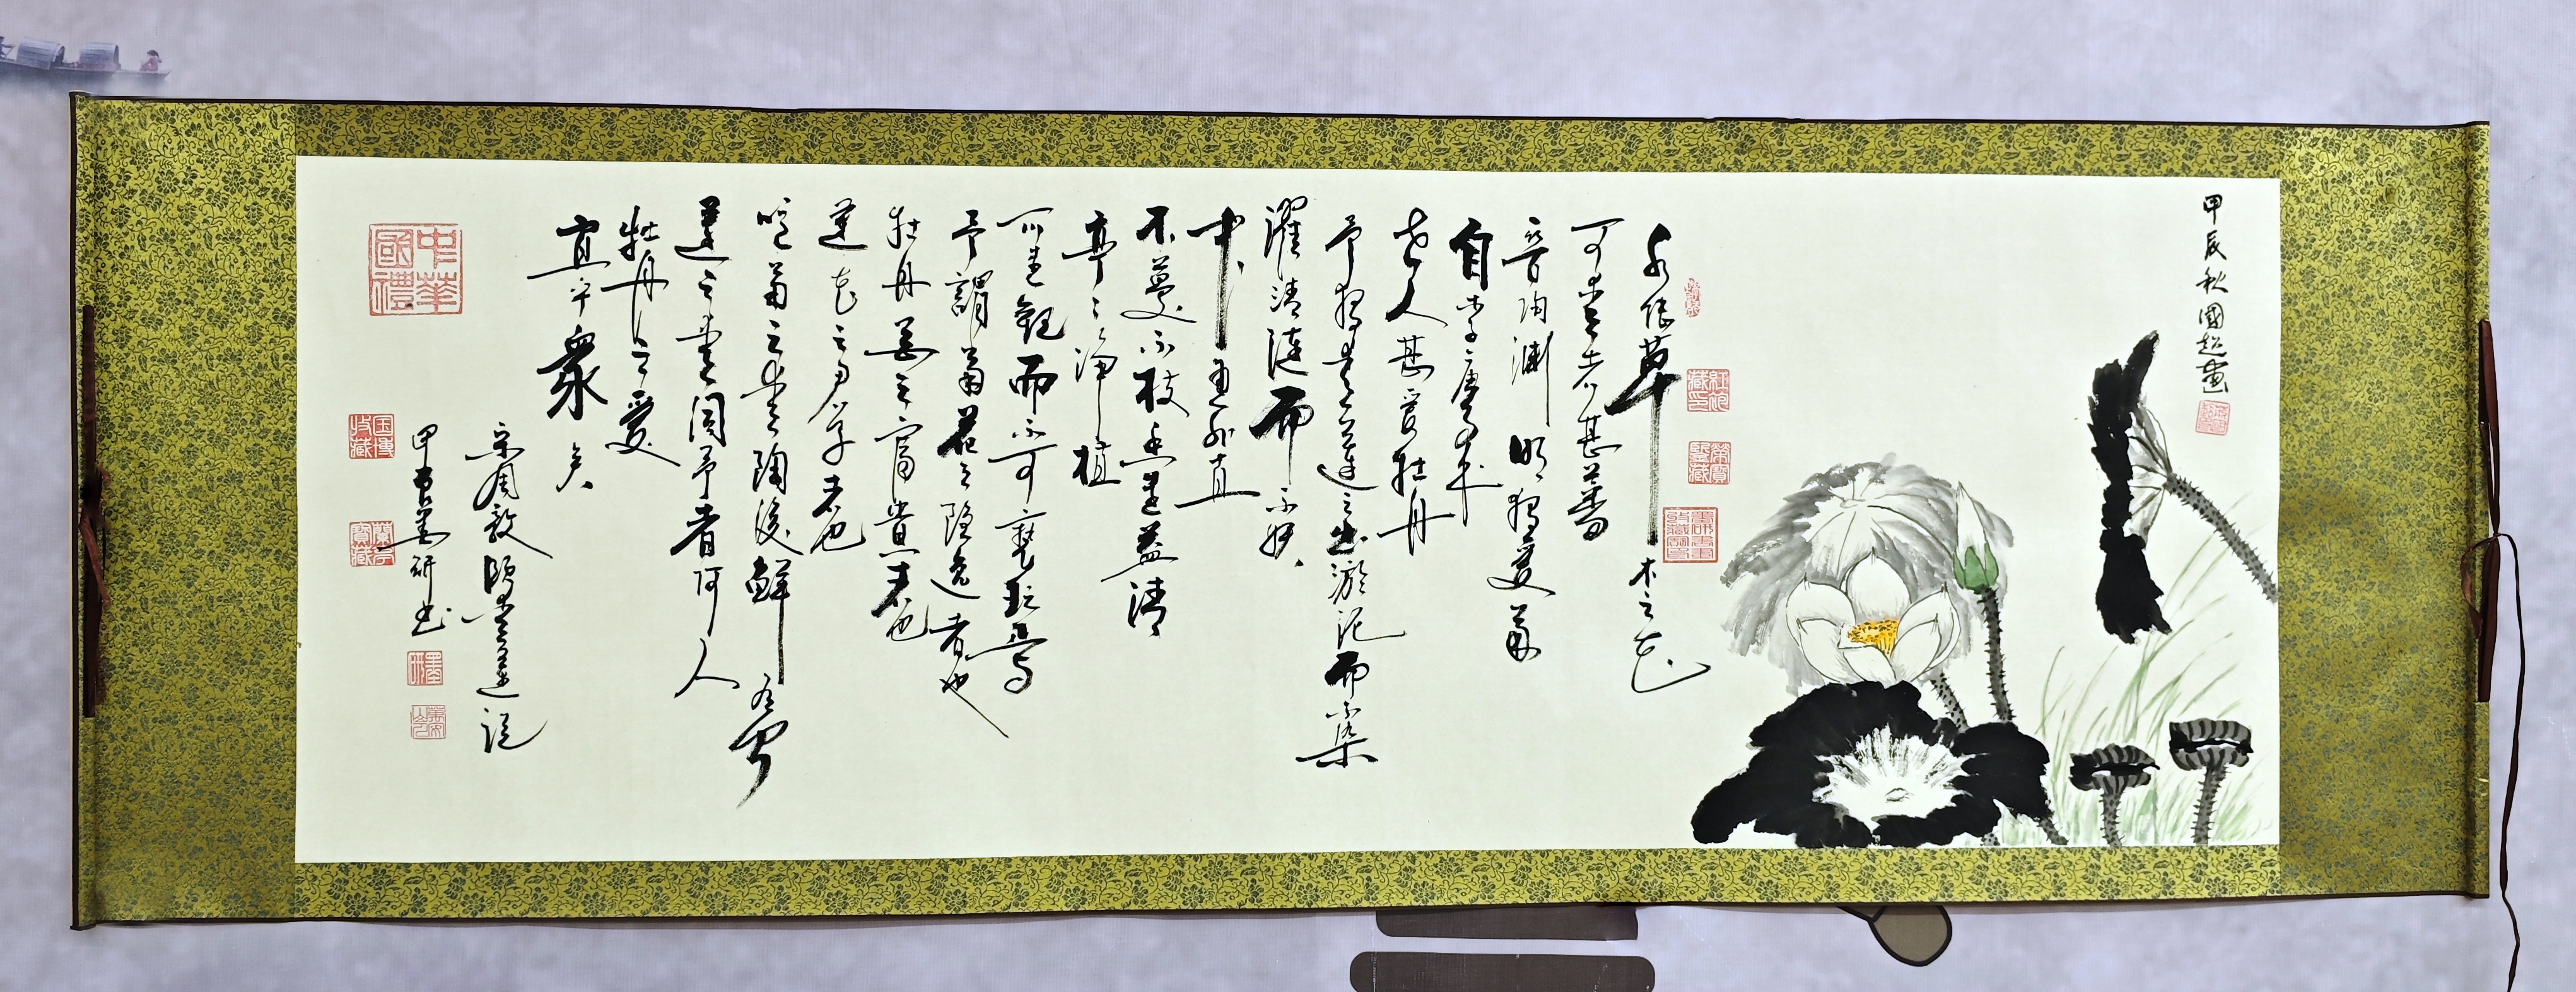 甲辰秋國超畫
水陸草木之花
可愛者甚蕃
晉陶渊明獨愛菊
自李唐來
世人甚愛牡丹
予獨愛蓮之出淤泥而不染
濯清漣而不妖
中通外直
不蔓不枝香遠益清
亭々淨植
可遠觀而不可褻玩焉
予謂菊花之隱逸者也
牡丹花之富貴者也
蓮花之君子者也
噫菊之愛陶後鮮有聞
蓮之愛同予者何人
牡丹之愛
宜乎衆矣
宋周敦頤愛蓮說
甲辰墨研书
中華國禮
国博收藏
蘭亭寶藏
墨研
榮寶鑒藏